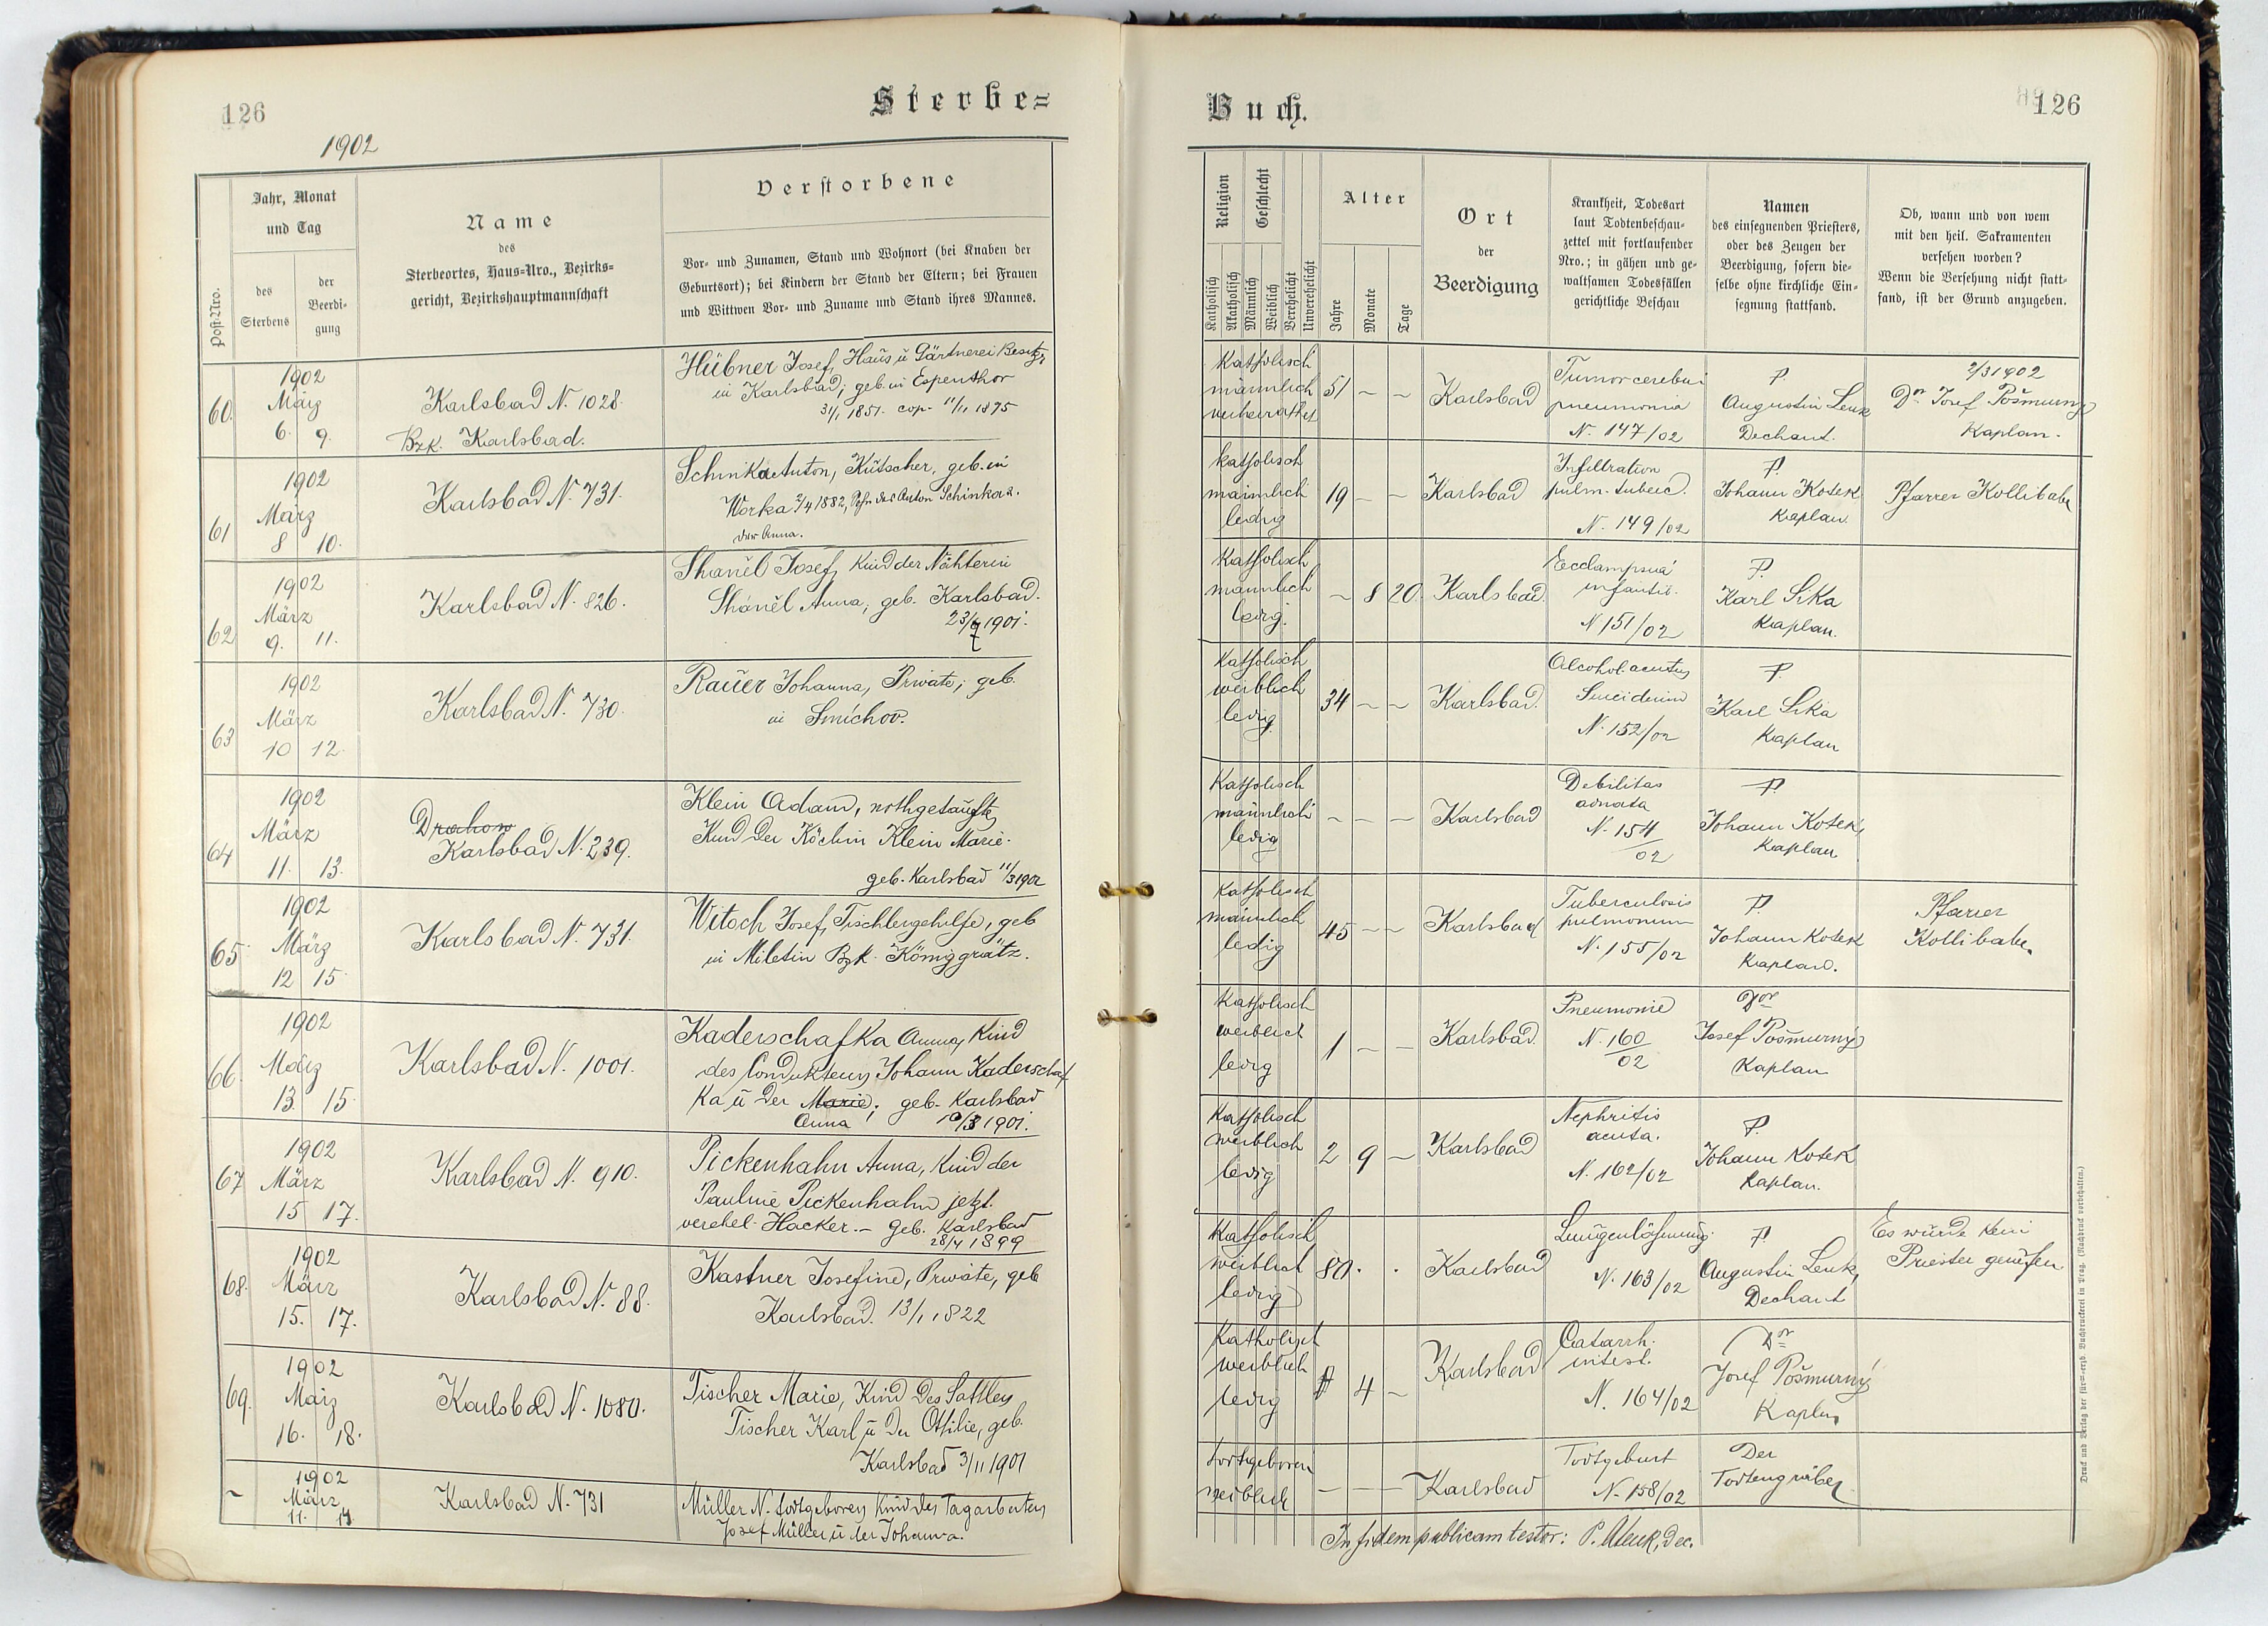 126
Sterbe=
1902
Post-Nro.
Jahr, Monat
und Tag
des
Sterbens
der
Beerdi-
gung
Name
des
Sterbeortes, Haus-Nro., Bezirks-
gericht, Bezirkshauptmannschaft
Verstorbene
Vor- und Zunamen, Stand und Wohnort (bei Knaben der
Geburtsort); bei Kindern der Stand der Eltern; bei Frauen
und Wittwen Vor- und Zuname und Stand ihres Mannes.
60.
1902
März
6. 9.
Karlsbad N. 1028.
Bzk. Karlsbad.
Hübner Josef, Haus u Gärtnerei Besitzer
in Karlsbad; geb. in Espenthor
31/1 1851. cop. 11/11 1875
61
1902
März
8 10.
Karlsbad N. 731.
Schinka Anton, Kutscher, geb. in
Worka 2/4 1882, Sohn des Anton Schinka u.
der Anna.
62
1902
März
9. 11.
Karlsbad N. 826.
Shánĕl Josef, Kind der Nähterin
Shánĕl Anna, geb. Karlsbad.
23/6 1901.
63
1902
März
10 12.
Karlsbad N. 730.
Rauer Johanna, Private; geb.
in Smíchov.
64
1902
März
11. 13.
Drahow
Karlsbad N. 239.
Klein Adam, nothgetauftes
Kind der Köchin Klein Marie.
geb. Karlsbad 11/3 1902
65
1902
März
12 15.
Karlsbad N. 731.
Witoch Josef, Tischlergehilfe, geb
in Miletin Bzk. Königgrätz.
66.
1902
März
13. 15.
Karlsbad N. 1001.
Kaderschafka Anna, Kind
des Condukteurs Johann Kaderschaf
ka u der Marie; geb. Karlsbad
Anna 10/3 1901.
67
1902
März
15 17.
Karlsbad N. 910.
Pickenhahn Anna, Kind der
Pauline Pickenhahn jetzt
verehel. Hacker.– geb. Karlsbad
28/4 1899
68.
1902
März
15. 17.
Karlsbad N. 88.
Kastner Josefine, Private, geb
Karlsbad. 13/1 1822
69.
1902
März
16. 18.
Karlsbad N. 1080.
Tischer Marie, Kind des Sattlers
Tischer Karl u der Ottilie, geb.
Karlsbad 3/11 1901
-
1902
März
11. 13
Karlsbad N. 731
Müller N. todtgeborenes Kind des Tagarbeiters
Josef Müller u der Johanna.
Buch.
126
Religion
Geschlecht
Katholisch
Akatholisch
Männlich
Weiblich
Verehelicht
Unverehelicht
Alter
Jahre
Monate
Tage
Ort
der
Beerdigung
Krankheit, Todesart
laut Todtenbeschau-
zettel mit fortlaufender
Nro.; in gähen und ge-
waltsamen Todesfällen
gerichtliche Beschau
Namen
des einsegnenden Priesters,
oder des Zeugen der
Beerdigung, sofern die-
selbe ohne kirchliche Ein-
segnung stattfand.
Ob, wann und von wem
mit den heil. Sakramenten
versehen worden?
Wenn die Versehung nicht statt-
fand, ist der Grund anzugeben.
Katholisch
männlich
verheirathet
51 – –
Karlsbad
Tumor cerebri
pneumonia
N. 147/02
P.
Augustin Lenk
Dechant.
2/3 1902
Dr Josef Pošmurný
Kaplan.
Katholisch
männlich
ledig
19 – –
Karlsbad
Infiltration
pulm. tuberc.
N. 149/02
P.
Johann Kotek
Kaplan.
Pfarrer Kollibabe
Katholisch
männlich
ledig.
– 8 20
Karlsbad.
Ecclampsia
infantil.
N 151/02
P.
Karl Sika
Kaplan.
Katholisch
weiblich
ledig.
34 – –
Karlsbad.
Alcohol. acutus
Suicidium
N. 152/02
P.
Karl Sika
Kaplan
Katholisch
männlich
ledig
– – –
Karlsbad
Debilitas
adnata
N. 154
02
P.
Johann Kotek,
Kaplan
Katholisch
männlich
ledig
45 – –
Karlsbad
Tuberculosis
pulmonum
N. 155/02
P.
Johann Kotek
Kaplan.
Pfarrer
Kollibabe.
Katholisch
weiblich
ledig
1 – –
Karlsbad.
Pneumonie
N. 160
02
Dor
Josef Pošmurný
Kaplan
Katholisch
weiblich
ledig
2 9 –
Karlsbad
Nephritis
acuta.
N. 162/02
P.
Johann Kotek
Kaplan.
Katholisch
weiblich
ledig
80 . .
Karlsbad
Lungenlähmung.
N. 163/02
P.
Augustin Lenk,
Dechant
Es wurde kein
Priester gerufen
Katholisch
weiblich
ledig
4 –
Karlsbad
Catarrh.
intest.
N. 164/02
Dr
Josef Pošmurný
Kaplan
todtgeboren
weiblich
– – –
Karlsbad
Todtgeburt
N. 158/02
Der
Todtengräber
In fidem publicam testor: P. ALenk, Dec.
Druck und Verlag der fürst-erzb. Buchdruckerei in Prag. (Nachdruck vorbehalten.)